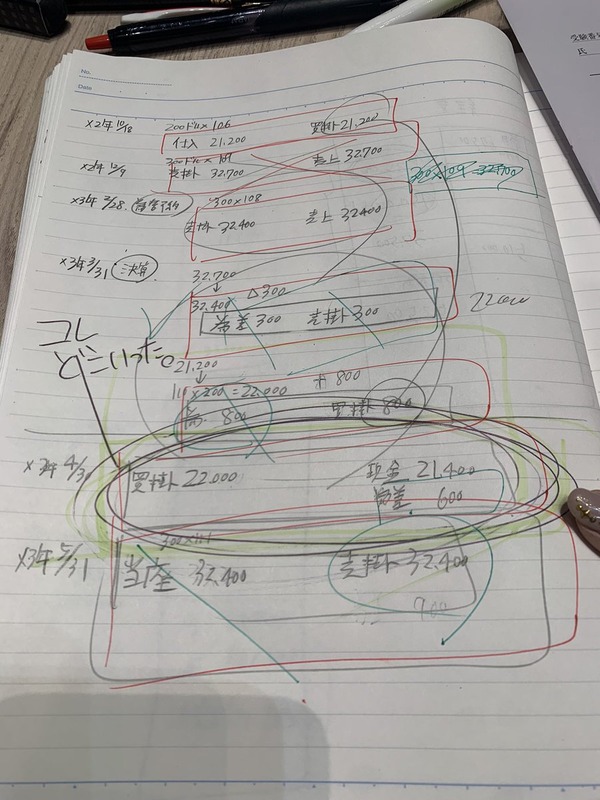 No.
Date
受験番
氏
×2年10/8 200ドル×106
仕入 21.200 買掛 21.200
×2年12/9 300ドル×109
売掛 32.700 売上 32.700
300×109=32.700
×3年2/28 為替予約 300×108
売掛 32.400 売上 32.400
×3年3/31 決算 32.700
↓
32.400 △300
為差 300 売掛 300
コレ
どこいった。
21.200
↓
110×200=22.000 800
為 800 買掛 800
×3年4/30 買掛 22.000 現金 21.400
為差 600
×3年5/31
当座 32.400 売掛 32.400
900